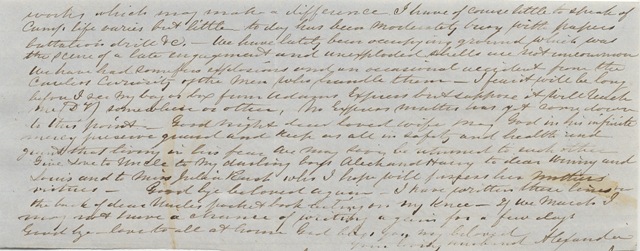 works which may make a difference I have of course little to speak of
Camp life varies but little to day has been moderately busy with papers
battalion drill &c. — We have lately been occupying ground which was
the scene of a late engagement and unexploded shells are not uncommon
We have had some few explosions and an occasional accident from the
careless of the men who handle them — I fear it will be long
before I see my box from Adams Express but suppose it will reach
me somehow or other, no Express matter has got down
to this point — Good night dear loved wife may God in his infinite
mercy preserve guard and keep us all in safety and health and
grant that living in his fear we may soon be returned to each other
Give love to Uncle to my darling boys Aleck and Harry to dear
and to Miss Julia who I hope will possess her Mothers
virtues — Good bye beloved again — I have written these lines on
the back of dear Uncles pocket book on my knee — If we march I
may not have a chance of writing again for a few days
Good bye — love to all at home God bless you my beloved
Your loving husband Alexander